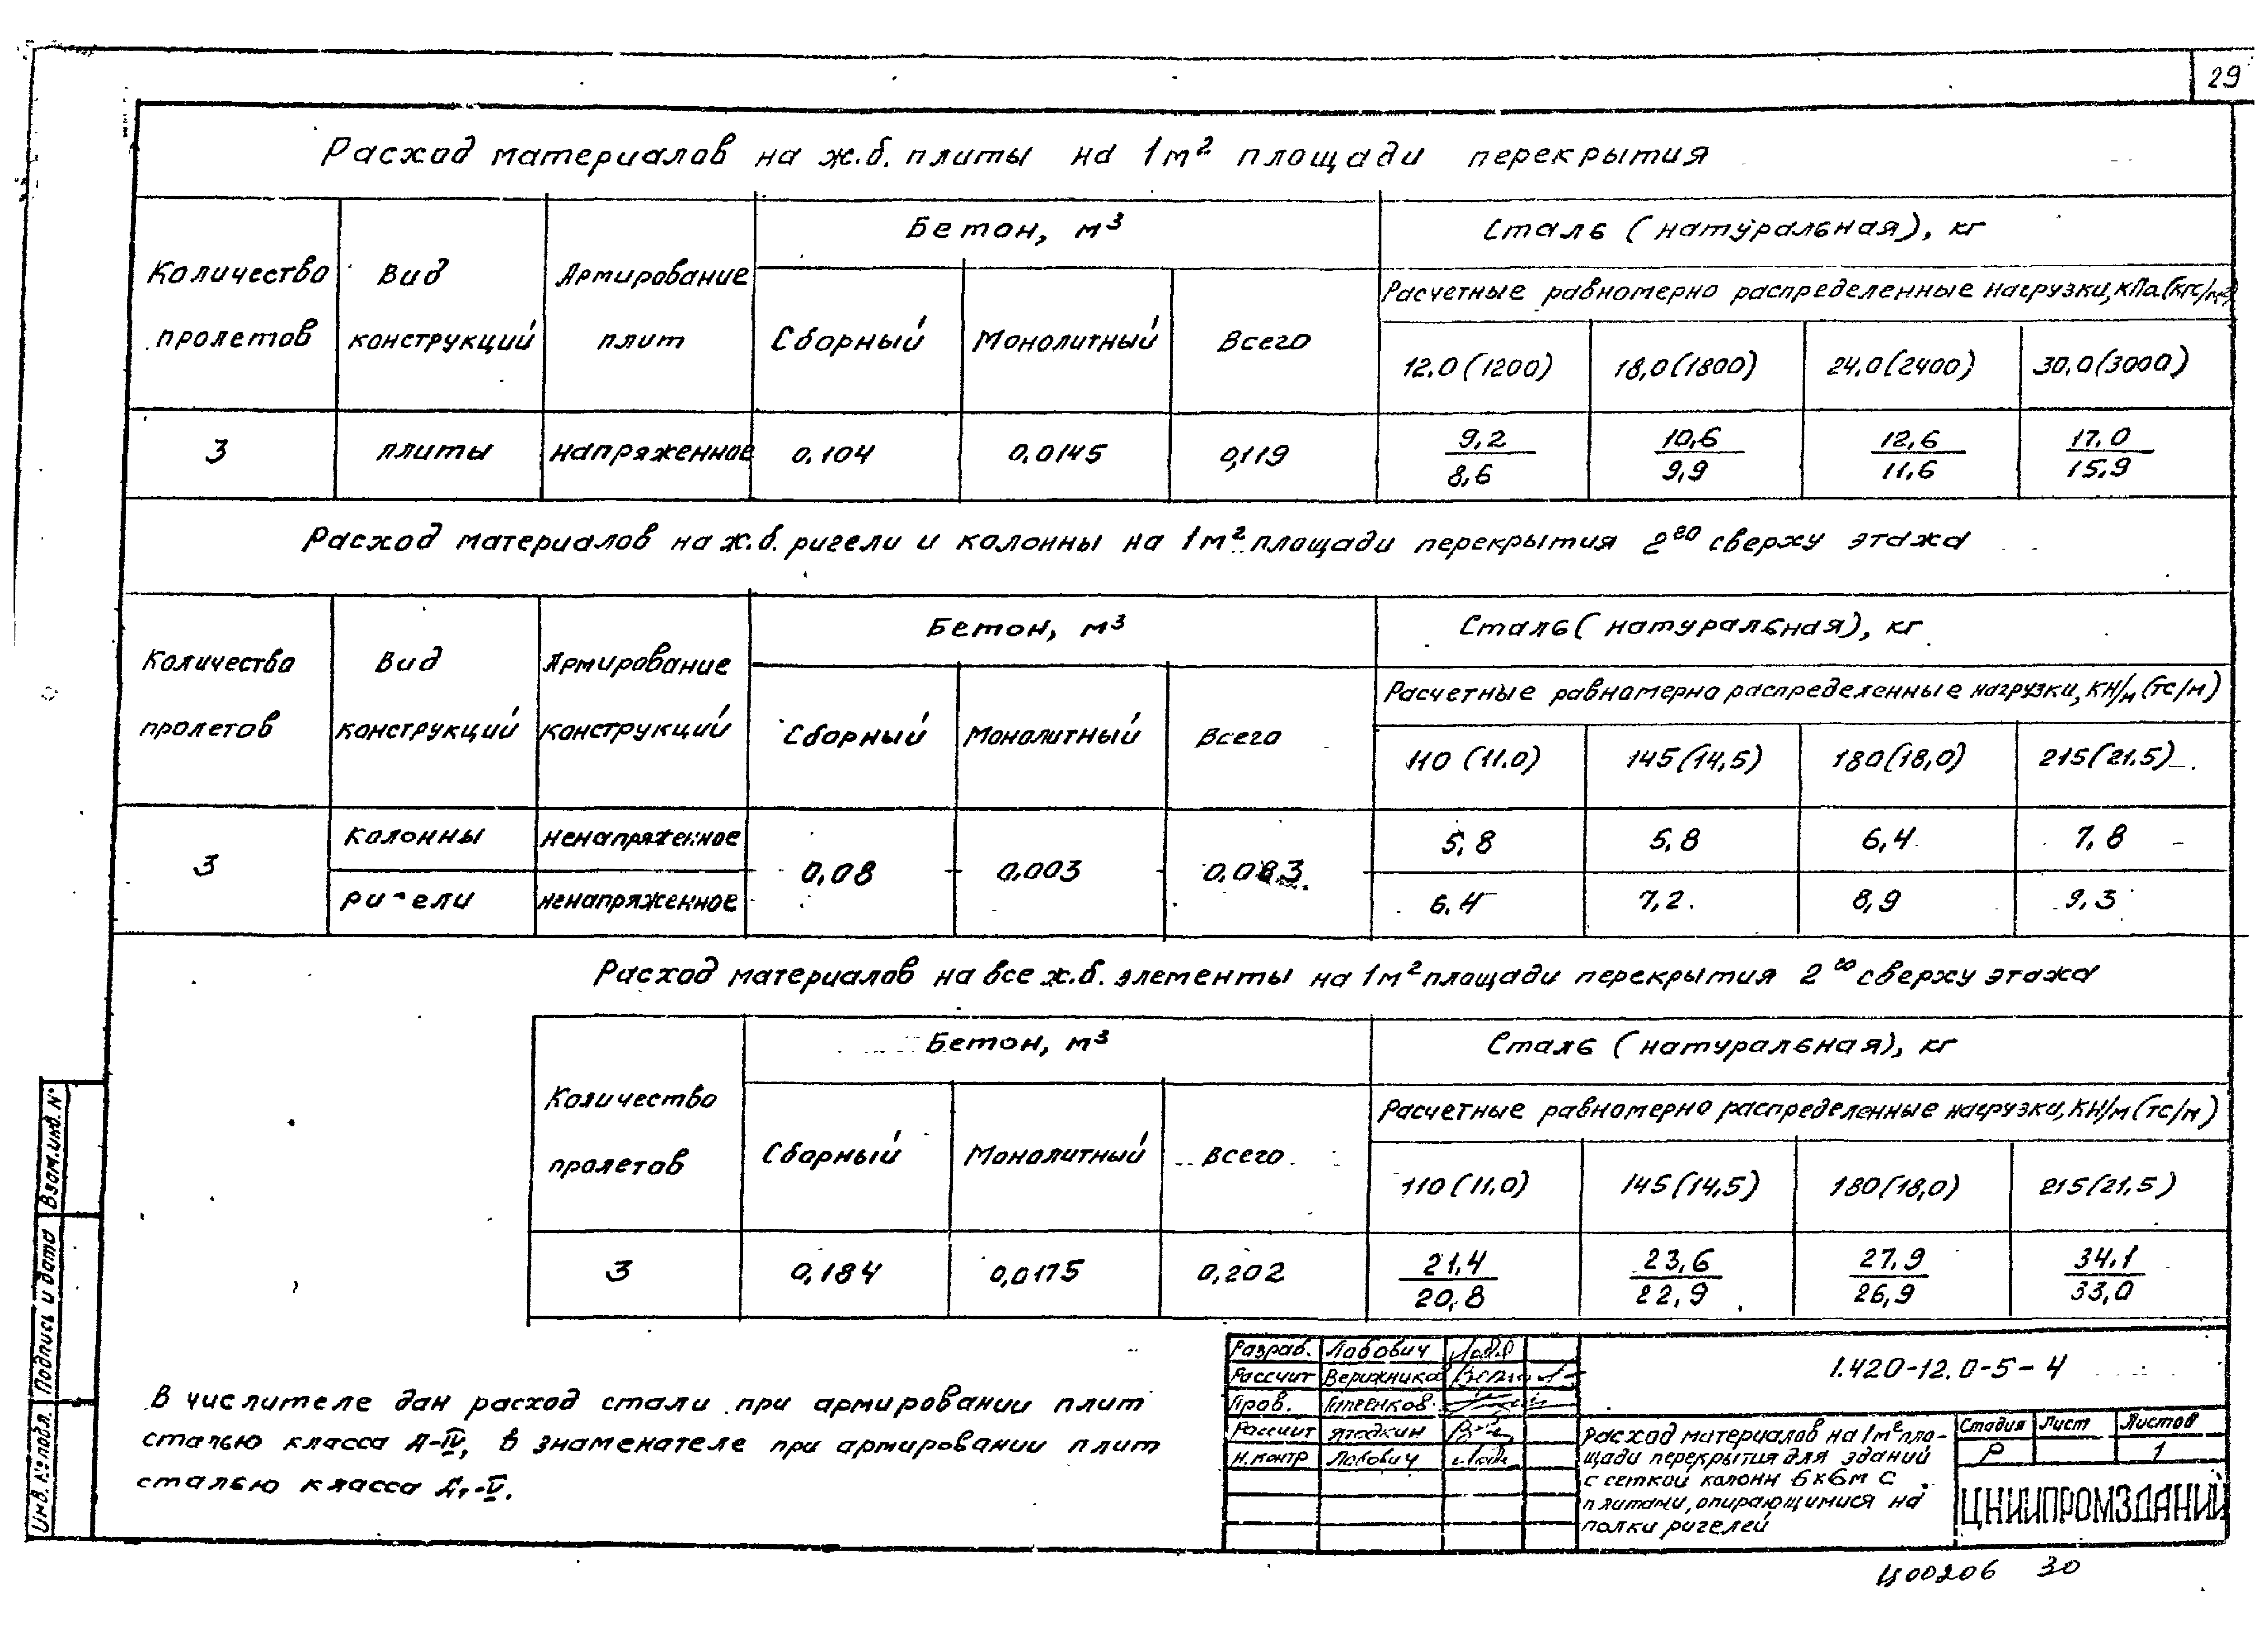 29
Расход материалов на ж.б. плиты на 1м² площади перекрытия
Количество пролетов Вид конструкций Армирование плит Бетон, м³ Сталь (натуральная), кг
Расчетные равномерно распределенные нагрузки, кПа (кгс/м²)
Сборный Монолитный Всего 12.0 (1200) 18,0 (1800) 24,0 (2400) 30,0 (3000)
3 плиты напряженное 0,104 0,0145 0,119 9,2/8,6 10,6/9,9 12,6/11,6 17.0/15,9
Расход материалов на ж.б. ригели и колонны на 1м² площади перекрытия 2го сверху этажа
Количество пролетов Вид конструкций Армирование конструкций Бетон, м³ Сталь (натуральная), кг
Расчетные равномерно распределенные нагрузки, кН/м (тс/м)
Сборный Монолитный Всего 110 (11.0) 145 (14,5) 180 (18,0) 215 (21.5)
3 колонны ненапряженное 0,08 0,003 0,083 5,8 5,8 6,4 7,8
ригели ненапряженное 6.4 7,2 8,9 9,3
Расход материалов на все ж.б. элементы на 1м² площади перекрытия 2го сверху этажа
Количество пролетов Бетон, м³ Сталь (натуральная), кг
Расчетные равномерно распределенные нагрузки, кН/м (тс/м)
Сборный Монолитный Всего 110 (11.0) 145 (14,5) 180 (18,0) 215 (21,5)
3 0,184 0,0175 0,202 21,4/20,8 23,6/22,9 27,9/26,9 34,1/33,0
В числителе дан расход стали при армировании плит
сталью класса А-IV, в знаменателе при армировании плит
сталью класса Ат-V.
Разраб. Лабович
Рассчит
Пров.
Рассчит Ягодкин
Н.контр Лабович
1.420-12.0-5-4
Расход материалов на 1м² пло-
щади перекрытия для зданий
с сеткой колонн 6х6м с
плитами, опирающимися на
полки ригелей
Стадия Лист Листов
Р 1
ЦНИИПРОМЗДАНИЙ
Взам.инв.№
Подпись и дата
Инв.№ подл.
Ц00206 30